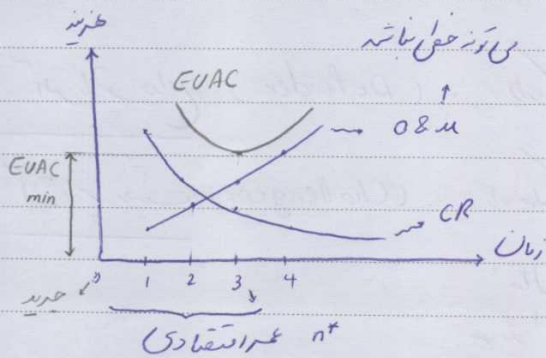 هزینه
می تونه خطی نباشه
EUAC
O&M
EUAC
min
CR
زمان
0 1 2 3 4
خرید
عمر اقتصادی n*